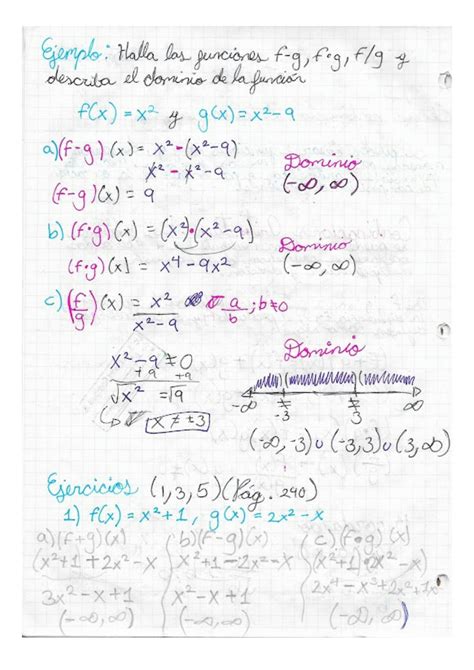 Ejemplo: Halla las funciones f-g, f•g, f/g y
describa el dominio de la función
f(x) = x² y g(x) = x²-9
a)(f-g)(x) = x²-(x²-9)
x² - x² -9
Dominio
(f-g)(x) = 9
(-∞, ∞)
b) (f•g)(x) = (x²)•(x²-9)
Dominio
(f•g)(x) = x⁴ - 9x²
(-∞, ∞)
c) (f/g)(x) = x²/x²-9 a/b ; b≠0
Dominio
x² - 9 ≠ 0
+9 +9
√x² = √9
x ≠ ±3
-∞ ≠ -3 ≠ 3 ∞
(-∞, -3) ∪ (-3, 3) ∪ (3, ∞)
Ejercicios (1, 3, 5) (Pág. 240)
1) f(x) = x²+1, g(x) = 2x² - x
a)(f+g)(x)
(x²+1 + 2x² - x
3x² - x + 1
(-∞, ∞)
b)(f-g)(x)
x²+1 - 2x² - x
x² - x + 1
(-∞, ∞)
c)(f•g)(x)
(x²+1)•2x² - x)
2x⁴ - x³ + 2x² + 1x
(-∞, ∞)